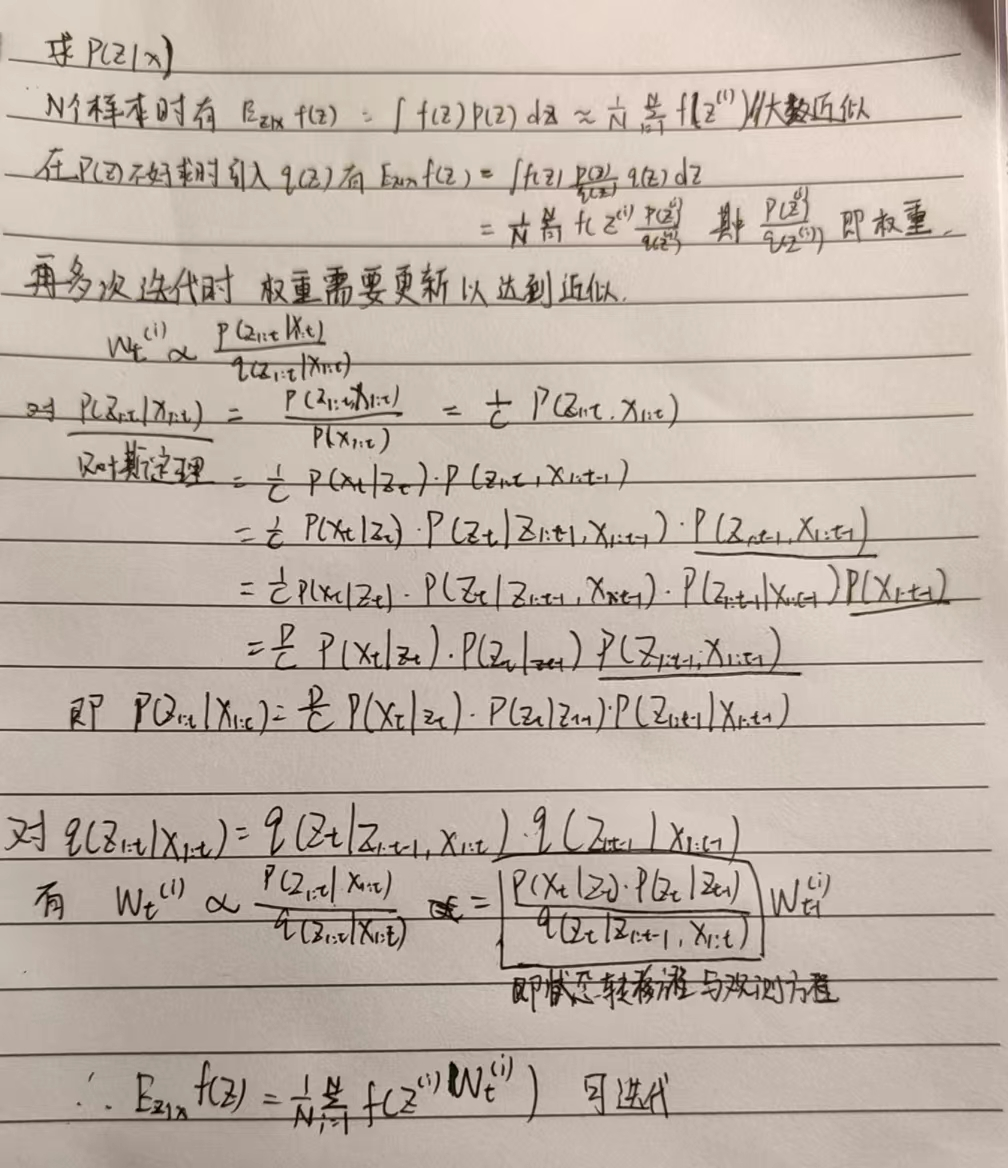 求 P(Z|X)
N个样本时有 E_{Z|X} f(Z) = ∫ f(Z) P(Z) dZ ≈ 1/N Σ_{i=1}^{N} f(Z^{(i)}) 大数近似
在P(Z)不好求时引入 q(Z) 有 E_{Z|X} f(Z) = ∫ f(Z) P(Z)/q(Z) q(Z) dZ
= 1/N Σ_{i=1}^{N} f(Z^{(i)} P(Z^{(i)})/q(Z^{(i)}) 其中 P(Z^{(i)})/q(Z^{(i)}) 即权重.
再多次迭代时 权重需要更新以达到近似.
W_t^{(i)} ∝ P(Z_{1:t}|X_{1:t})/q(Z_{1:t}|X_{1:t})
对 P(Z_{1:t}|X_{1:t}) = P(Z_{1:t},X_{1:t})/P(X_{1:t}) = 1/C P(Z_{1:t}, X_{1:t})
= 1/C P(X_t|Z_t)·P(Z_{1:t}, X_{1:t-1})
= 1/C P(X_t|Z_t)·P(Z_t|Z_{1:t-1}, X_{1:t-1})·P(Z_{1:t-1}, X_{1:t-1})
= 1/C P(X_t|Z_t)·P(Z_t|Z_{1:t-1}, X_{1:t-1})·P(Z_{1:t-1}|X_{1:t-1})P(X_{1:t-1})
= D/C P(X_t|Z_t)·P(Z_t|Z_{t-1}) P(Z_{1:t-1}, X_{1:t-1})
即 P(Z_{1:t}|X_{1:t}) = D/C P(X_t|Z_t)·P(Z_t|Z_{t-1})·P(Z_{1:t-1}|X_{1:t-1})
对 q(Z_{1:t}|X_{1:t}) = q(Z_t|Z_{1:t-1}, X_{1:t})·q(Z_{1:t-1}|X_{1:t-1})
有 W_t^{(i)} ∝ P(Z_{1:t}|X_{1:t})/q(Z_{1:t}|X_{1:t}) = P(X_t|Z_t)·P(Z_t|Z_{t-1})/q(Z_t|Z_{1:t-1}, X_{1:t}) W_{t-1}^{(i)}
即状态转移方程与观测方程
∴ E_{Z|X} f(Z) = 1/N Σ_{i=1}^{N} f(Z^{(i)} W_t^{(i)}) 可迭代